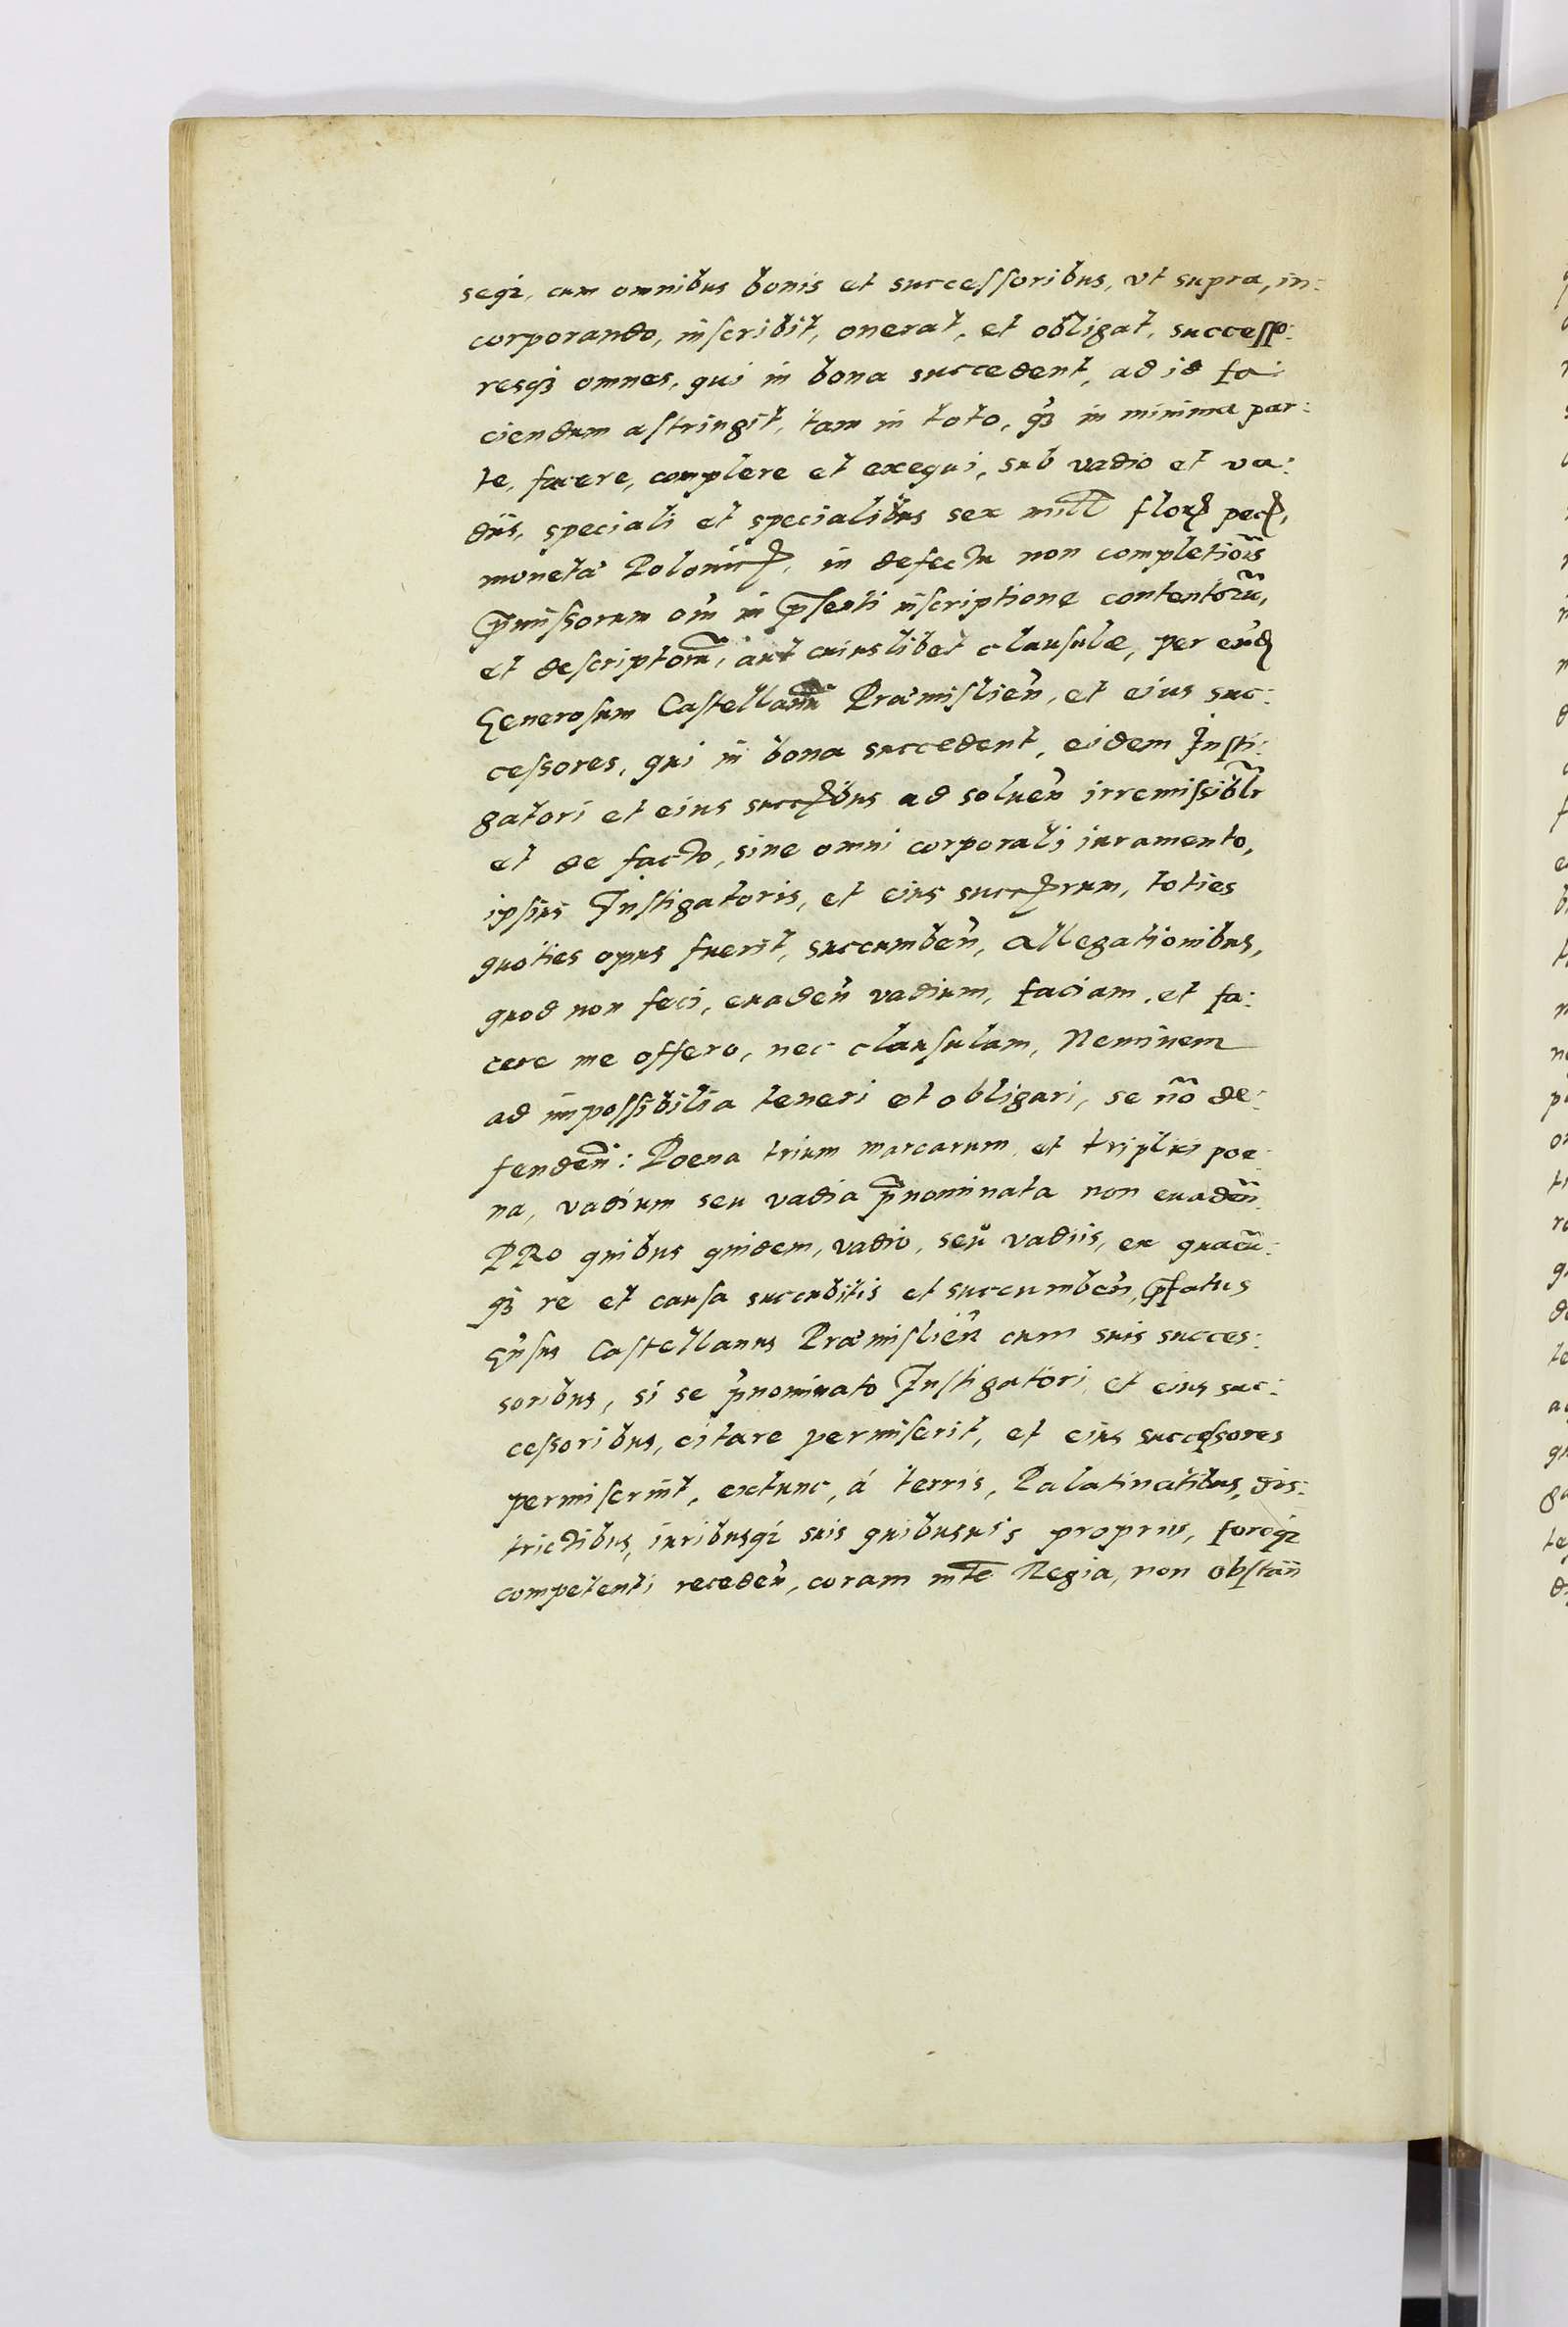 seqȝ, cum omnibus bonis et successoribus, vt supra, in:
corporando, inscribit, onerat, et obligat, successo:
resqȝ omnes, qui in bona succedent, ad id fa:
ciendum astringit, tam in toto, qȝ in minima par:
te, facere, complere et exequi, sub vadio et va:
diis, speciali et specialibus sex mill̃ flor pec,
moneta Polonic, in defectu non completiõis
p̃missorum oĩm in p̃senti inscriptione contentorũ,
et descriptorũ, aut cuiuslibet clausulæ, per eund
Generosum Castellanũ Præmislień, et eius suc:
cessores, qui in bona succedent, eidem Insti:
gatori et eius succbus ad soluen̄ irremissibl̃r
et de facto, sine omni corporali iuramento,
ipsius Instigatoris, et eius succrum, toties
quoties opus fuerit, succumben̄, allegationibus,
quod non feci, euaden̄ vadium, faciam, et fa:
cere me offero, nec clausulam, Neminem
ad impossibilia teneri et obligari, se nõ de:
fendeñ: Poena trium marcarum, et triplici poe:
na, vadium seu vadia p̃nominata non euadeñ.
PRo quibus quidem, vadio, seu vadiis, ex quacũ:
qȝ re et causa succubitis et succumben̄, p̃fatus
Gn̄sus Castellanus Præmislień cum suis succes:
soribus, si se p̃nominato Instigatori, et eius suc:
cessoribus, citare permiserit, et eius successores
permiserint, extunc, á terris, Palatinatibus, dis:
trictibus, iuribusqȝ suis quibusuis propriis, foroqȝ
competenti receden̄, coram mt̃e Regia, non obstañ